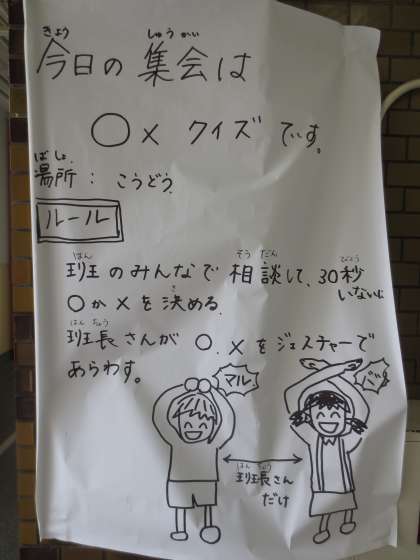 きょう しゅうかい
今日の集会は
○×クイズです。
ばしょ
場所：こうどう
ルール
はん そうだん びょう
班のみんなで相談して、30秒
いないに
き
○か×を決める。
はんちょう
班長さんが○.×をジェスチャーで
あらわす。
マル
バツ
はんちょう
班長さん
だけ